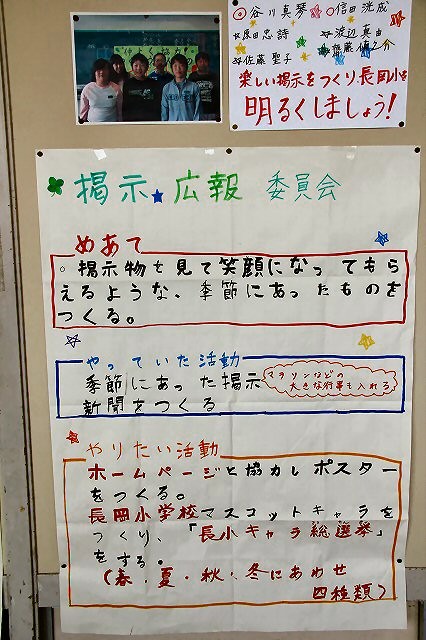 ◎谷川真琴 ○信田洸成
☆原田忠詩 ☆渡辺真由
☆佐藤聖子 ☆齋藤慎之介
楽しい掲示をつくり長岡小を
明るくしましょう!
掲示★広報 委員会
めあて
○掲示物を見て笑顔になってもら
えるような、季節にあったものを
つくる。
やっていた活動
季節にあった掲示
マラソンなどの
大きな行事も入れる
新聞をつくる
やりたい活動
ホームページと協力しポスター
をつくる。
長岡小学校マスコットキャラを
つくり、「長小キャラ総選挙」
をする。
(春・夏・秋・冬にあわせ
四種類)